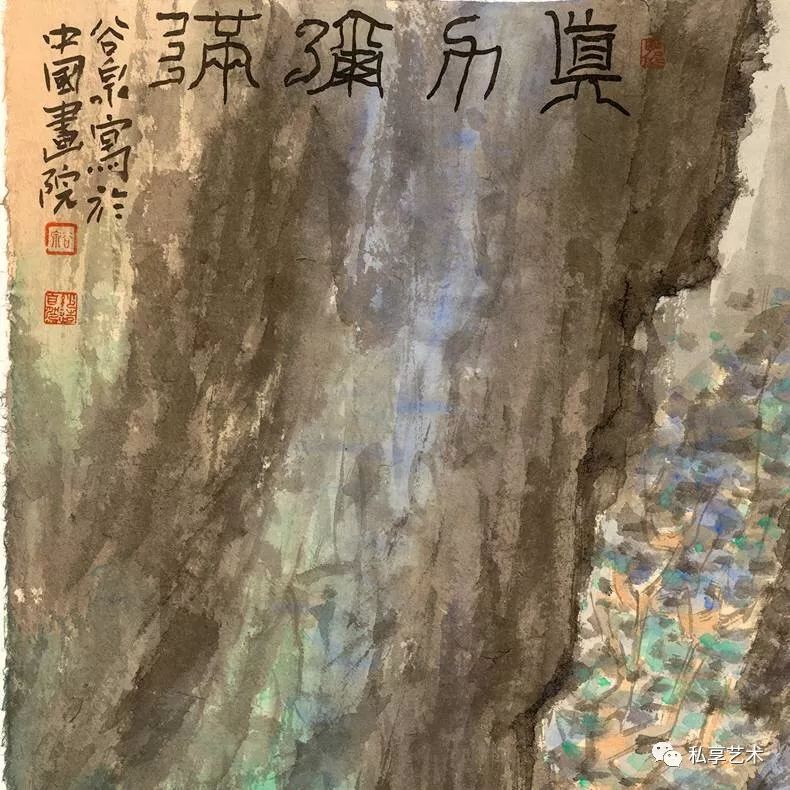 眞力彌滿
谷泉寫於
中國畫院
谷泉
私享艺术